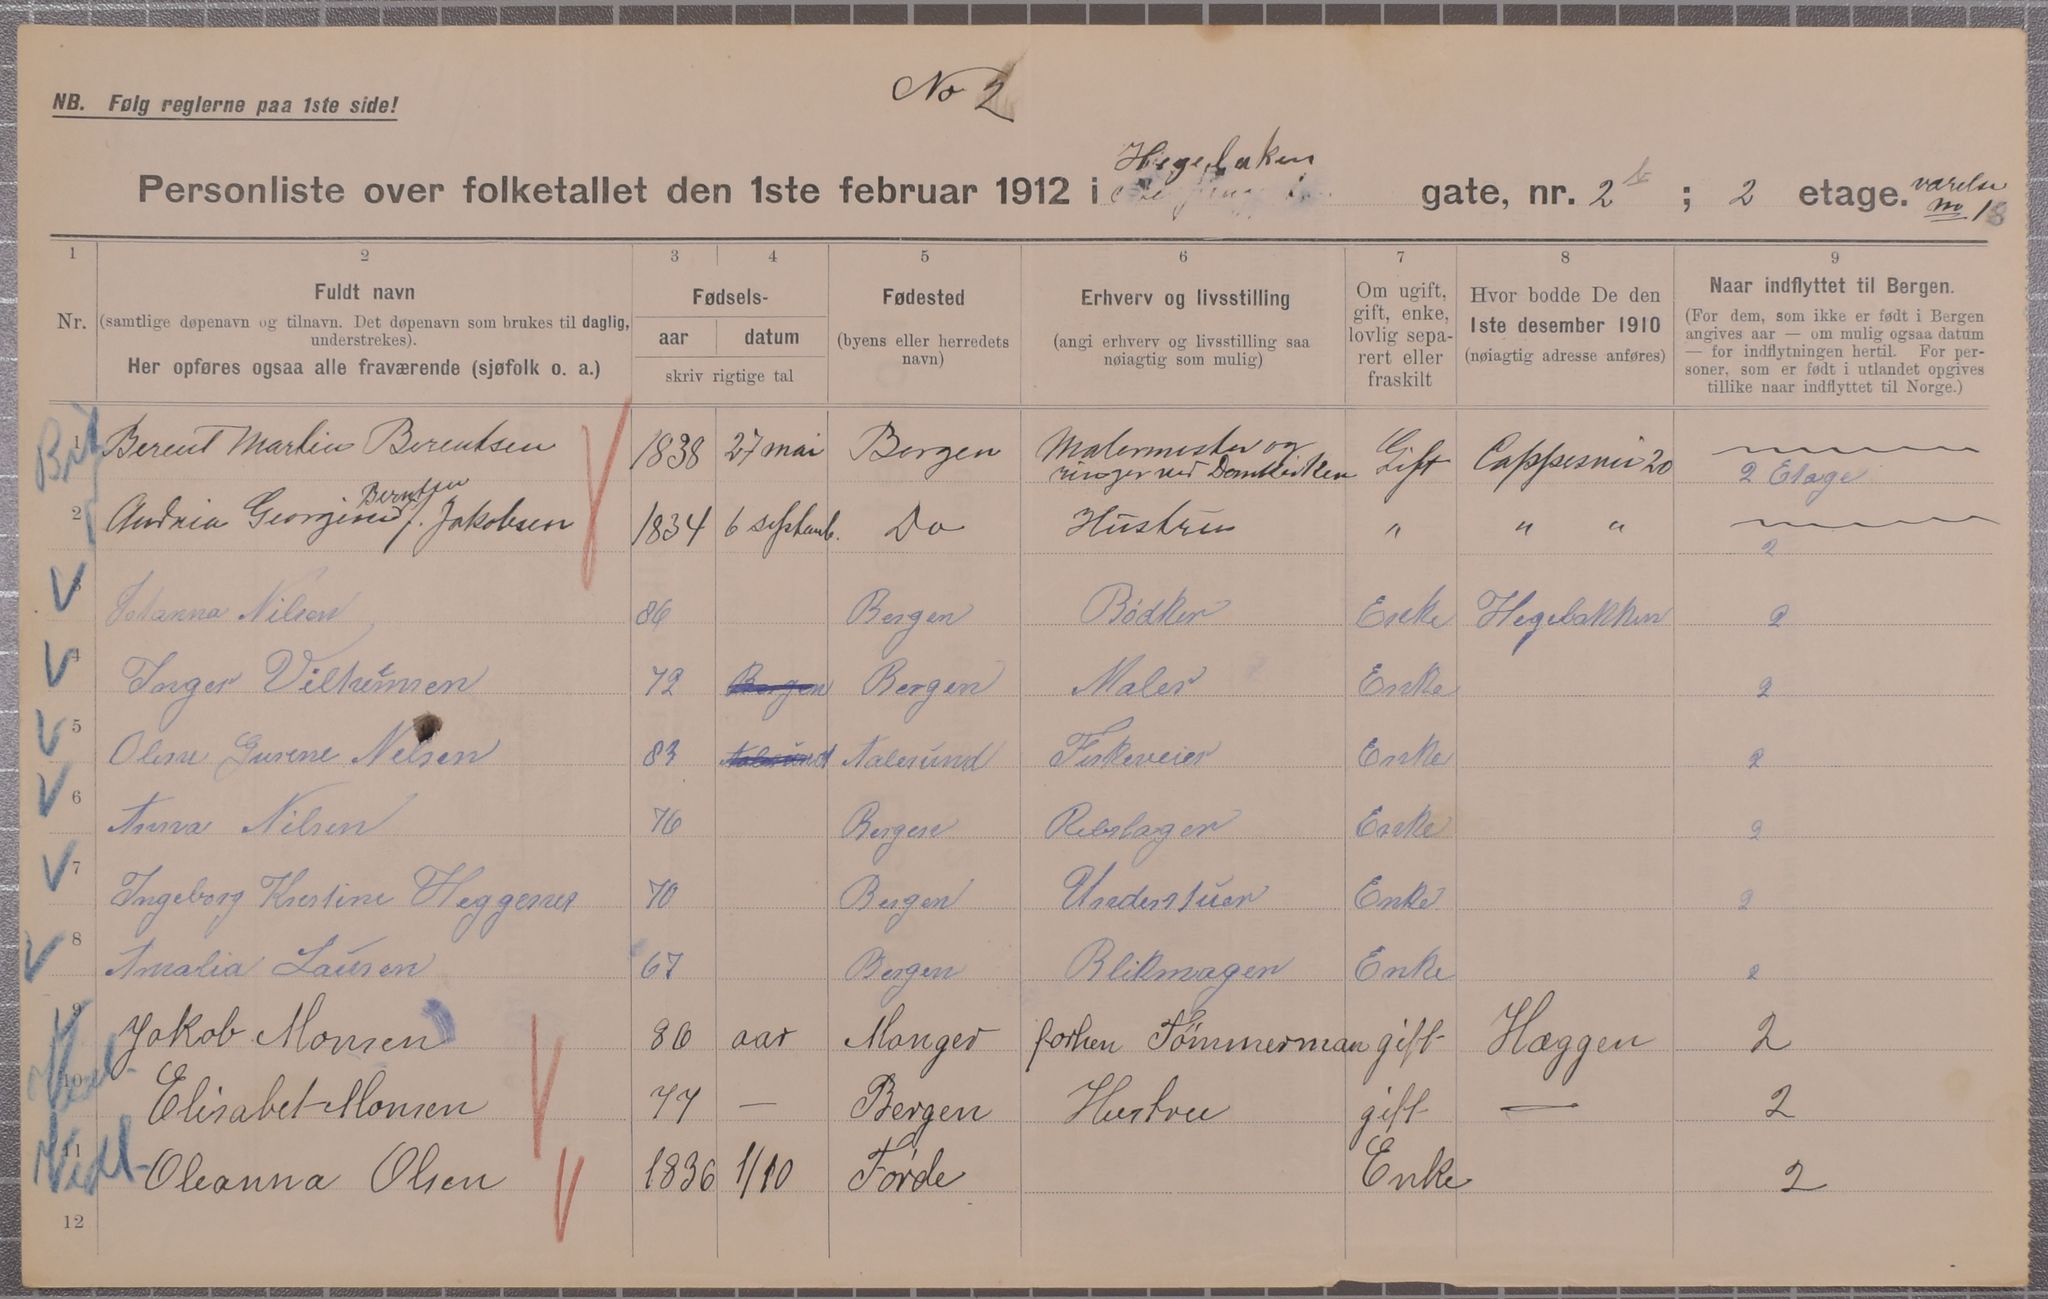 No 2
NB. Følg reglerne paa 1ste side!
Hegebaken
Personliste over folketallet den 1ste februar 1912 i gate, nr. 2 b ; 2 etage. værelse no 18
1 2 3 4 5 6 7 8 9
Nr.
Fuldt navn
(samtlige døpenavn og tilnavn. Det døpenavn som brukes til daglig, understrekes).
Her opføres ogsaa alle fraværende (sjøfolk o. a.)
Fødsels-
aar datum
skriv rigtige tal
Fødested
(byens eller herredets navn)
Erhverv og livsstilling
(angi erhverv og livsstilling saa nøiagtig som mulig)
Om ugift, gift, enke, lovlig sepa-rert eller fraskilt
Hvor bodde De den
1ste desember 1910
(nøiagtig adresse anføres)
Naar indflyttet til Bergen.
(For dem, som ikke er født i Bergen
angives aar — om mulig ogsaa datum
— for indflytningen hertil. For per-
soner, som er født i utlandet opgives
tillike naar indflyttet til Norge.)
1 Berent Martin Berentsen 1838 27 mai Bergen Malermester og ringer ved Domkirken Gift Cappesvei 20 2 Etage
2 Andrea Georgine Berntsen f. Jakobsen 1834 6 septemb. Do Hustru " " " 2
3 Johanna Nilsen 86 Bergen Bödker Enke Hegebakken 2
4 Inger Vilhelmsen 72 Bergen Bergen Maler Enke 2
5 Oline Gurene Nelsen 83 Aalesund Aalesund Fiskeveier Enke 2
6 Anna Nilsen 76 Bergen Rebslager Enke 2
7 Ingeborg Kristine Heggernes 70 Bergen Enke 2
8 Amalia Laursen 67 Bergen Blikmager Enke 2
9 Jakob Monsen 86 aar Manger forhen Tömmerman gift Hæggen 2
10 Elisabet Monsen 77 — Bergen Hustru gift — 2
11 Oleanna Olsen 1836 1/10 Førde Enke 2
12